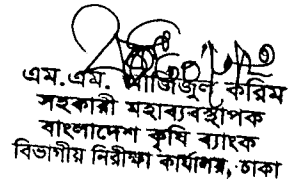 এম. এম. আজিজুল করিম
সহকারী মহাব্যবস্থাপক
বাংলাদেশ কৃষি ব্যাংক
বিভাগীয় নিরীক্ষা কার্যালয়, ঢাকা